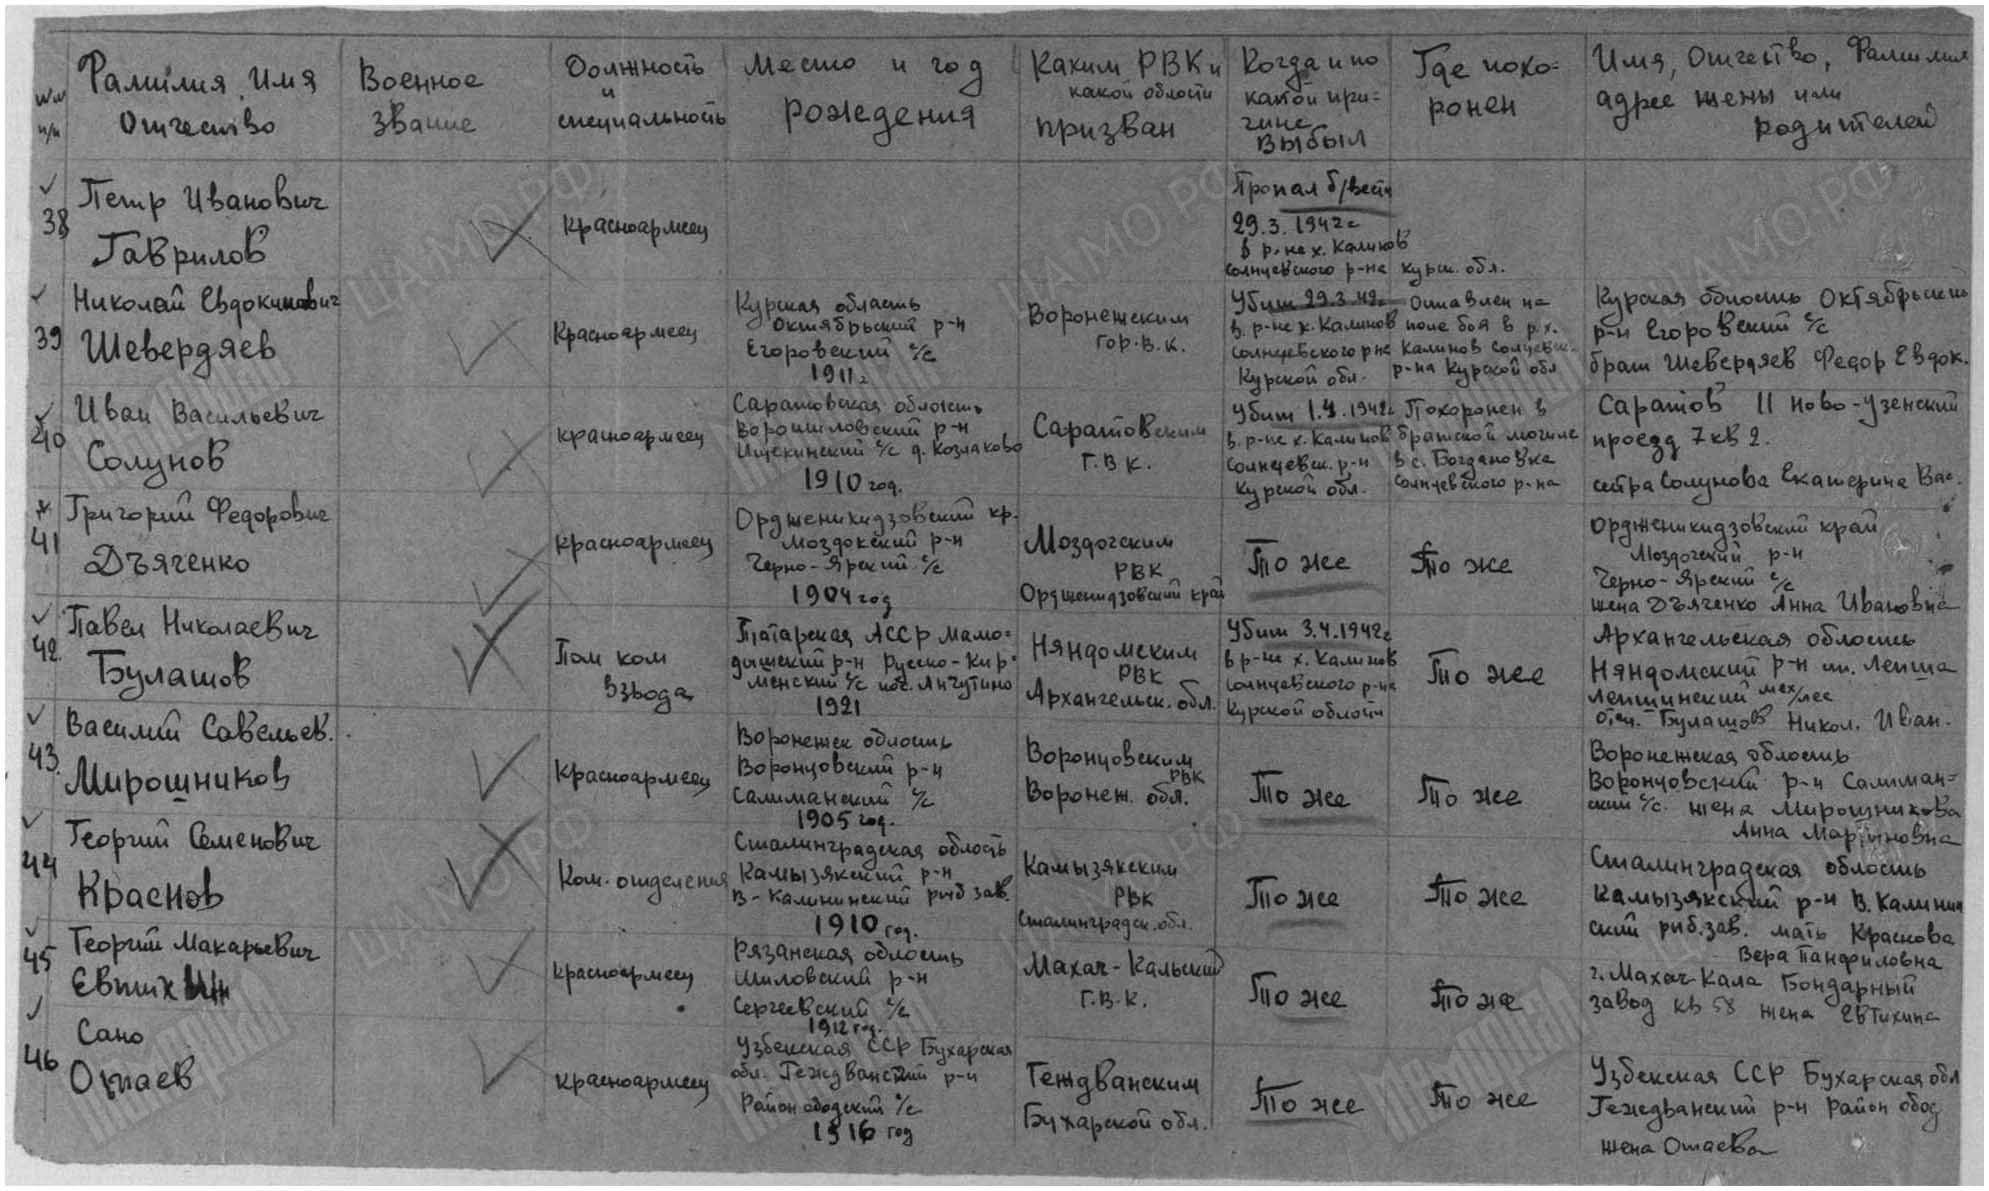 №№ п/п
Фамилия, Имя
Отчество
Военное
звание
Должность
и
специальность
Место и год
рождения
Каким РВК и
какой области
призван
Когда и по
какой при=
чине
выбыл
Где похо=
ронен
Имя, Отчество, Фамилия
адрес жены или
родителей
38
Петр Иванович
Гаврилов
Красноармеец
Пропал б/вести
29.3.1942г
в р-не х. Калинов
Солнцевского р-на Курск. обл.
39
Николай Евдокимович
Шевердяев
Красноармеец
Курская область
Октябрьский р-н
Егоровский с/с
1911г
Воронежским
Гор.В.К.
Убит 29.3.42г.
в р-не х. Калинов
Солнцевского р-на
Курской обл.
Оставлен на
поле боя в р.х.
Калинов Солнцевск.
р-на Курской обл
Курская область Октябрьский
р-н Егоровский с/с
брат Шевердяев Федор Евдок.
40
Иван Васильевич
Солунов
Красноармеец
Саратовская область
Ворошиловский р-н
с/с д. Козлаково
1910 год.
Саратовским
Г.В.К.
Убит 1.4.1942г
в р-не х. Калинов
Солнцевск. р-н
Курской обл.
Похоронен в
братской могиле
в с. Богдановка
Солнцевского р-на
Саратов II Ново-Узенский
проезд 7 кв 2.
сестра Солунова Екатерина Вас.
41
Григорий Федорович
Дъяченко
Красноармеец
Орджоникидзовский кр.
Моздокский р-н
Черно-Ярский с/с
1904 год
Моздогским
РВК
Орджонидзовский край
То же
То же
Орджоникидзовский край
Моздогский р-н
Черно-Ярский с/с
жена Дъяченко Анна Ивановна
42
Павел Николаевич
Булашов
Пом ком
взвода
Татарская АССР Мамо=
дышский р-н Русско-Кир-
менский с/с пос. Анчутино
1921
Няндомским
РВК
Архангельск. обл.
Убит 3.4.1942г
в р-не х. Калинов
Солнцевского р-на
Курской области
То же
Архангельская область
Няндомский р-н ст. Лепша
Лепшинский мех/лес
отец. Булашов Никол. Иван.
43.
Василий Савельев.
Мирошников
Красноармеец
Воронежск область
Воронцовский р-н
Салиманский с/с
1905 год.
Воронцовским
РВК
Воронеж. обл.
То же
То же
Воронежская область
Воронцовский р-н Салиман=
ский с/с. жена Мирошникова
Анна Мартыновна
44
Георгий Семенович
Краснов
Ком. отделения
Сталинградская область
Камызякский р-н
В-Калининский рыб зав.
1910 год.
Камызякским
РВК
Сталинградск. обл.
То же
То же
Сталинградская область
Камызякский р-н В. Калинин
ский рыб.зав. мать Краснова
Вера Панфиловна
45
Георгий Макарьевич
Евтихин
Красноармеец
Рязанская область
Шиловский р-н
Сергеевский с/с
1912 год.
Махач-Кальский
Г.В.К.
То же
То же
г. Махач-Кала Бондарный
завод кв 58 жена Евтихина
46
Сано
Отаев
Красноармеец
Узбекская ССР Бухарская
обл. Геждванский р-н
Район ободский с/с
1916 год
Геждванским
Бухарской обл.
То же
То же
Узбекская ССР Бухарская обл
Геждванский р-н Район обод
жена Отаева